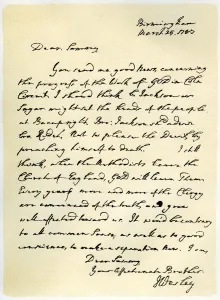 Birmingham
March 25, 1783
Dear Sammy
You send me good News, concerning
the progress of the Work of GOD in
I should think Jackson or
Sagar might set the Heads of the people
at Bacup right. Bro: Jackson
But to please the Devil by
preaching himself to death. I still
think, when the Methodists leave the
Church of England, GOD will leave Them.
Every year more and more of the Clergy
are convinced of the truth, and grow
well-affected toward us. It would be contrary
to all common Sense, as well as to good
conscience, to make a separation Now. I am
Dear Sammy
Your Affectionate Brother
J Wesley